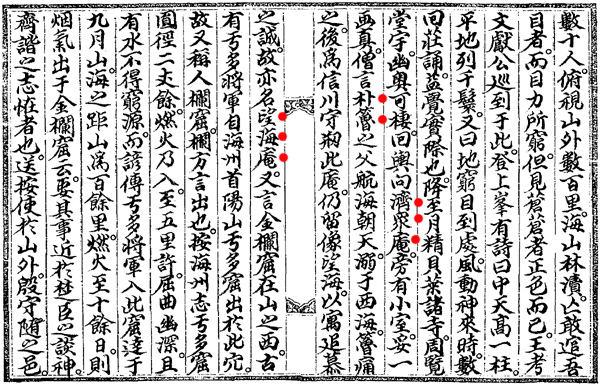 數十人俯視山外數百里海山林瀆亡敢追吾
目者而目力所窮但見蒼蒼者正色而已王考
文獻公巡到于此登上峯有詩曰中天高一柱
平地列千鬟又曰地窮目到處風動神來時數
回莊誦益覺實際也降至月精貝葉諸寺周覽
堂宇幽奧可棲回輿向濟眾庵旁有小室妥一
畫真僧言朴𥶇之父航海朝天溺于西海𥶇痛
之後爲信川守剏此庵仍留像望海以寓追慕
之誠故亦名望海庵又言金欄窟在山之西古
有亏多將軍自海州首陽山亏多窟出於此穴
故又稱人欄窟欄方言出也按海州志亏多窟
圓徑二丈餘燃火乃入至五里許屈曲幽深且
有水不得窮源而諺傳亏多將軍入此窟達于
九月山海之距山爲百餘里燃火至十餘日則
烟氣出于金欄窟云要其事近於楚臣之談神
齊諧之志恠者也送按使於山外殷守隨之邑